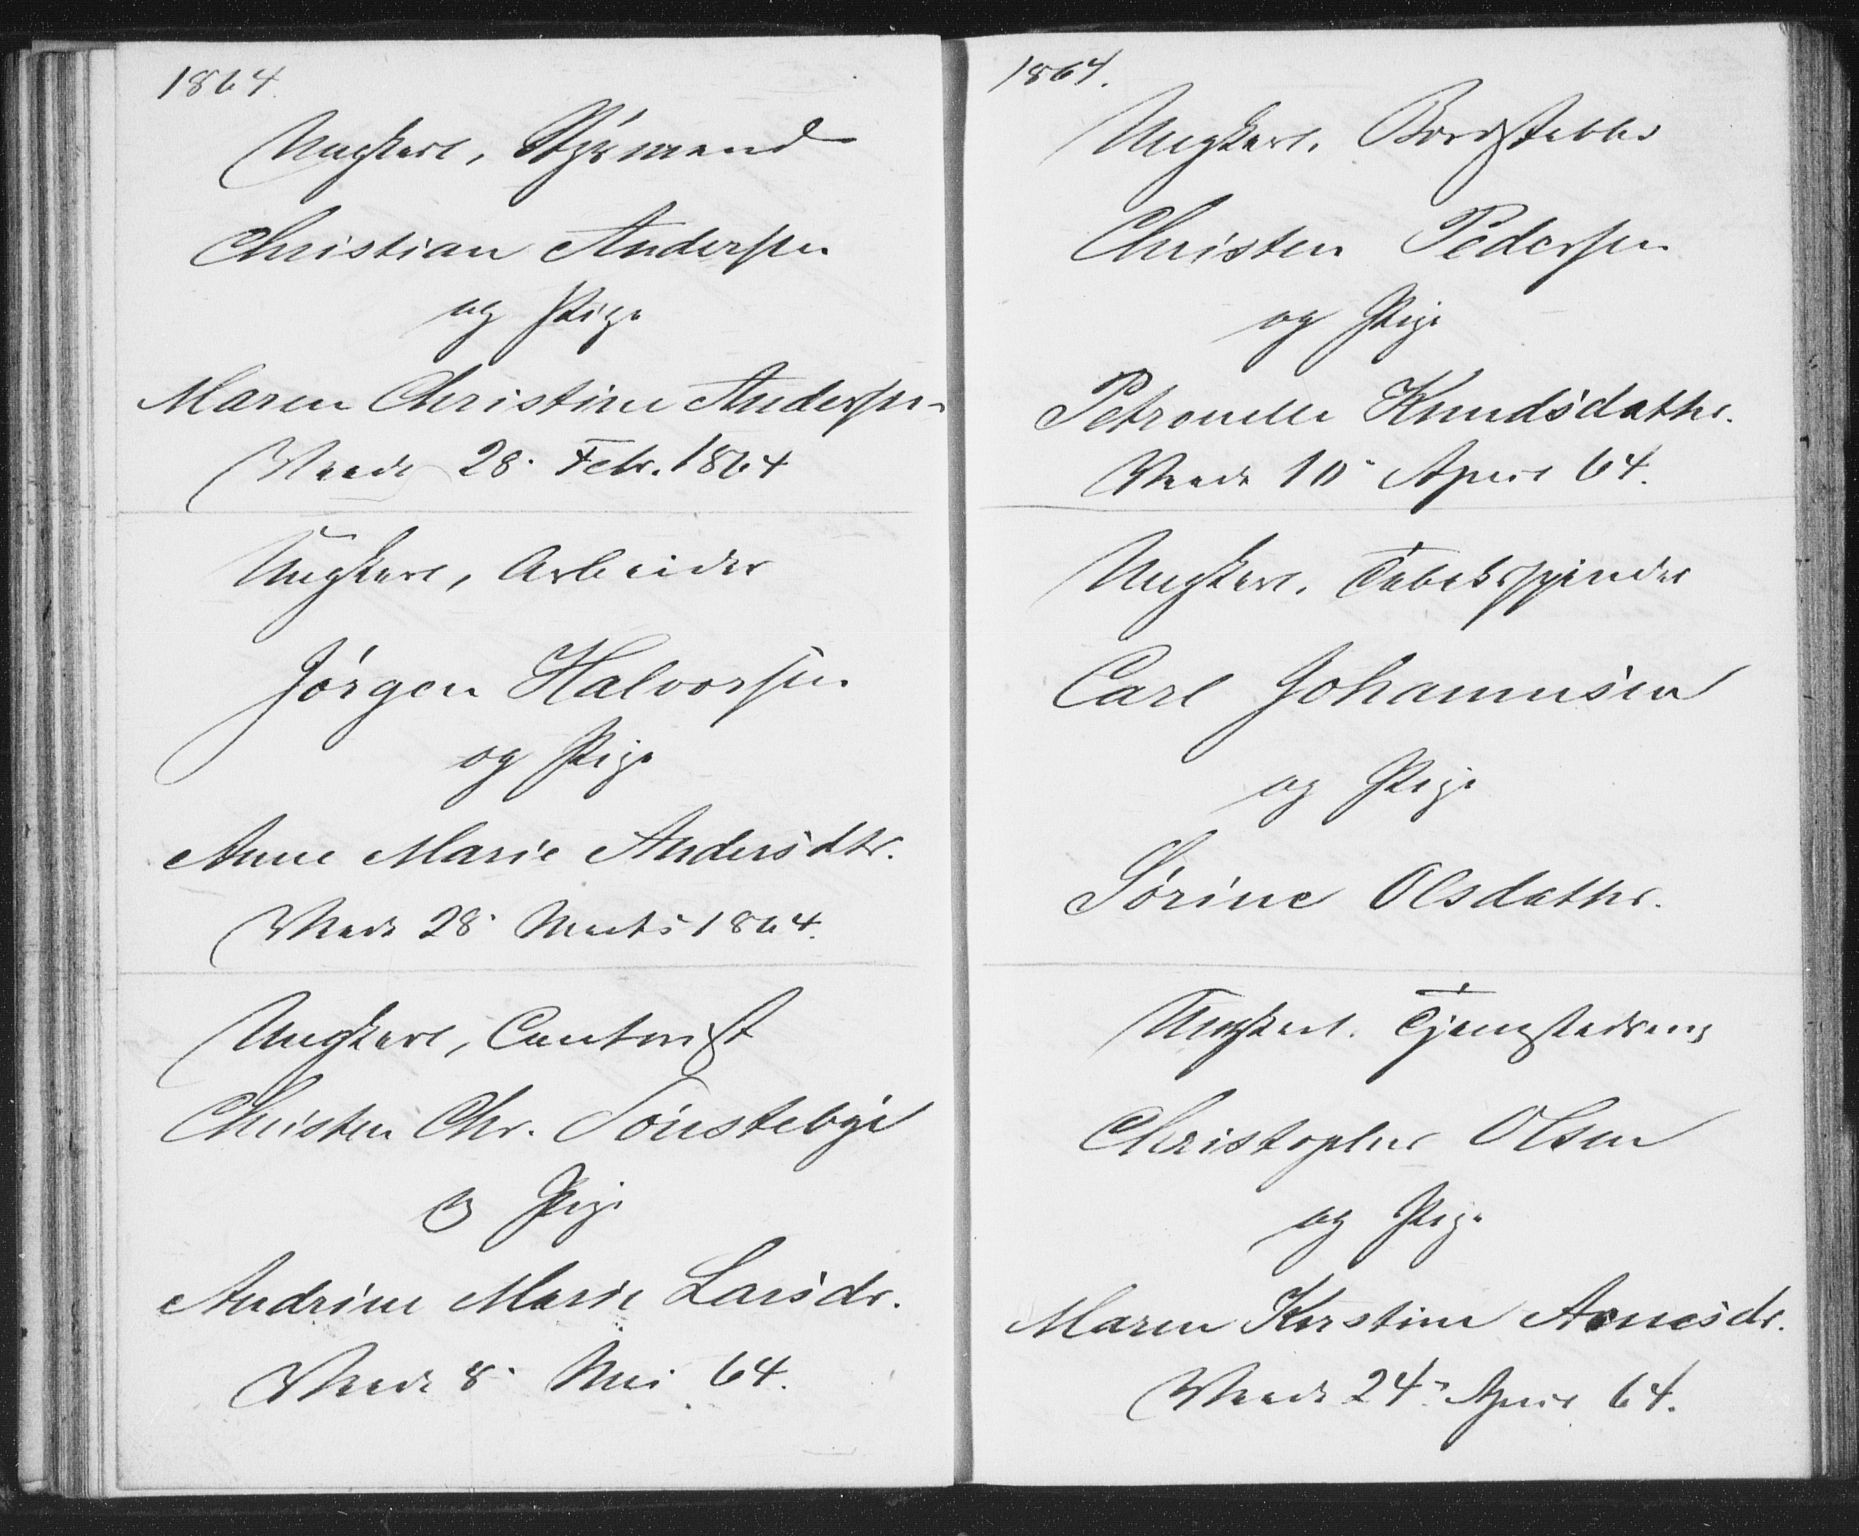 1864.
Ungkarl, Styrmand
Christian Andersen
og Pige
Maren Christine Andersen
28. Febr. 1864
Ungkarl, Arbeider
Jørgen Halvorsen
og Pige
Anne Marie Andersdtr.
28. Marts 1864.
Ungkarl, Contorist
Christen Chr. Sønstebye
og Pige
Andrine Marie Larsdr.
8. Mai 64.
1864.
Ungkarl. Bordstabler
Christen Pedersen
og Pige
Petronelle Knudsdathr.
10. April 64.
Ungkarl. Tobakspinder
Carl Johannisen
og Pige
Sørine Olsdathr.
Ungkarl.
Christopher Olsen
og Pige
Maren Kirstine Arnesdr.
24. April 64.